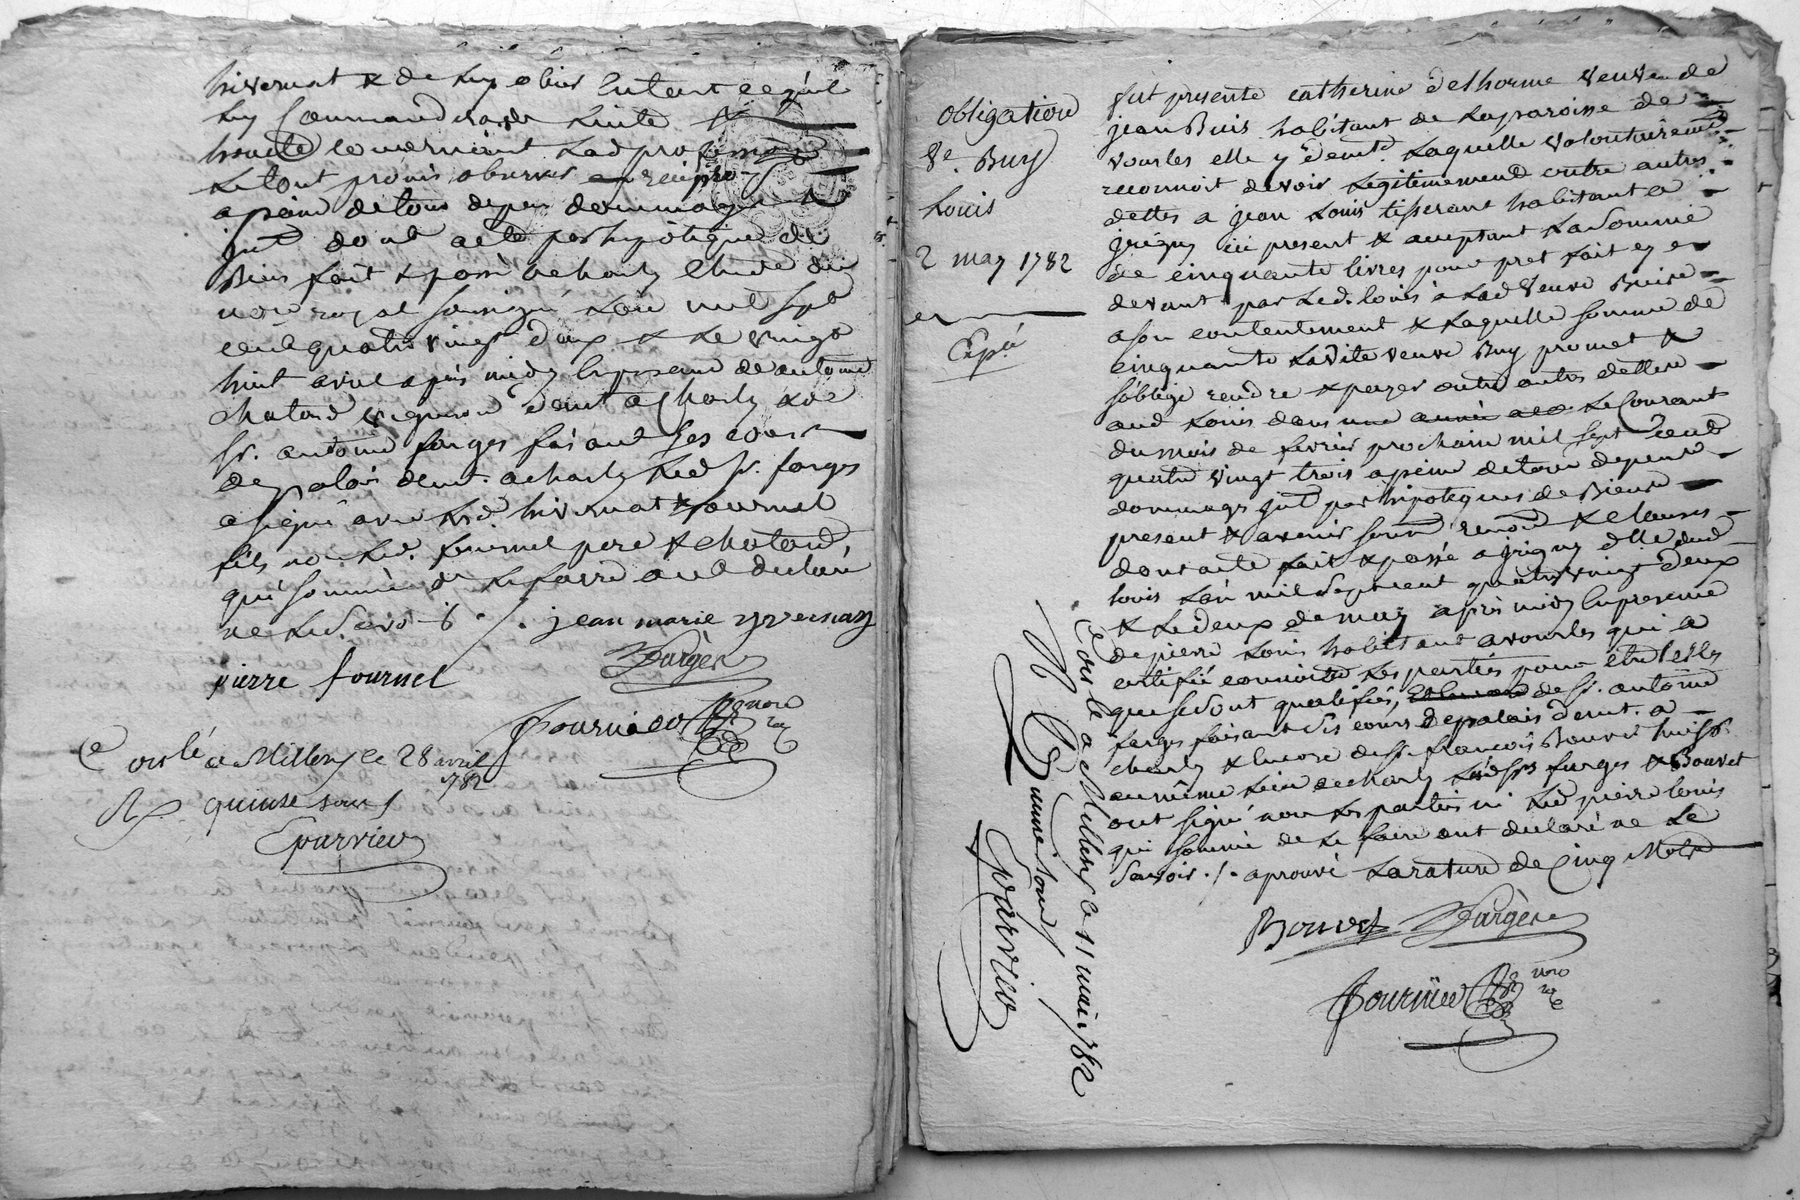 hivernat & de luy obeir en tout ce qu'il
luy Commandera de Licite &
honnete concernant lad profession
Le tout promis observer reciproq
a peine de tous depens dommages &
int dont acte par hypoteque de
Biens fait & passé a charly Etude du
no.re royal soussigné L'an mil sept
cent quatre vingt deux & Le vingt
huit avril apres midy En presence de antoine
chatard vigneron demt a charly & de
sr. antoine farges faisant ses cours
de palais demt. a charly Led sr. farges
a signé avec Led. hivernat & fournel
fils non Led. fournel pere & chatard
qui sommés de Le faire ont declaré
ne Le savoir ./. jean marie yvernaz
Farges
pierre fournel
Fournier no.re roy
Con.lé a Millery ce 28 avril
1782
R. quinze sous
Eparvier
obligation
Ve. Buy
Louis
2 may 1782
Expé
fut presente catherine delhorme veuve de
jean Buis habitant de La paroisse de
vourles elle y demte. Laquelle volontairement
reconnoit devoir Legitimement entre autres
dettes a jean Louis tisserant habitant a
jrigny ici present & acceptant La Somme
de cinquante livres pour pret fait cy
devant par Led. louis à Lad veuve Buis
a son contentement & Laquelle somme de
cinquante Ladite veuve Buy promet &
s'oblige rendre & payer entre autres dettes
aud Louis dans une année a Le Courant
du mois de fevrier prochain mil sept Cent
quatre vingt trois a peine de tous depens
dommages jnt par hipoteques de Biens
present & avenir soum renon & clauses
dont acte fait & passé a jrigny dud
louis L'an mil sept cent quatre vingt deux
& Le deux de may apres midy En presence
de pierre Louis habitant a vourles qui a
certifié connoitre Les parties pour etre telles
que se sont qualifiés, de sr. antoine
farges faisant ses cours de palais demt. a
charly & Encore de sr. françois Bouvet huissr.
au même Lieu de charly Lesd srs farges & Bouvet
ont signé non Les parties ni Led pierre louis
qui sommé de Le faire ont declaré ne Le
Savoir ./. aprouvé La rature de Cinq Mots
Bouvet Farges
Fournier no.re roy
Con.lé a Millery ce 11 mai 1782
R. Quinze sous
Eparvier